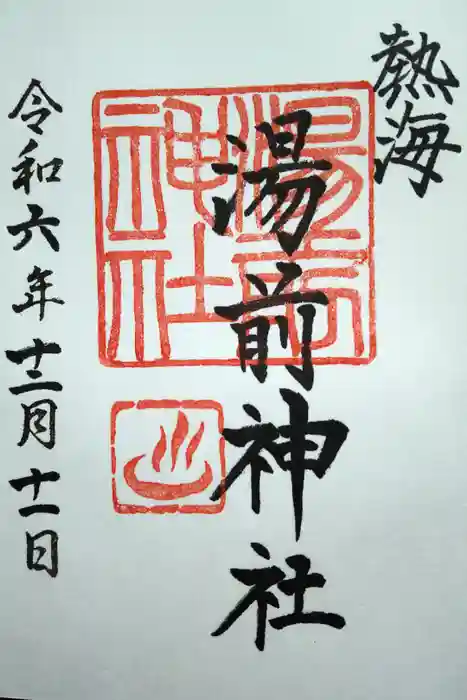 熱海
湯前神社
令和六年十二月十一日
湯前
神社